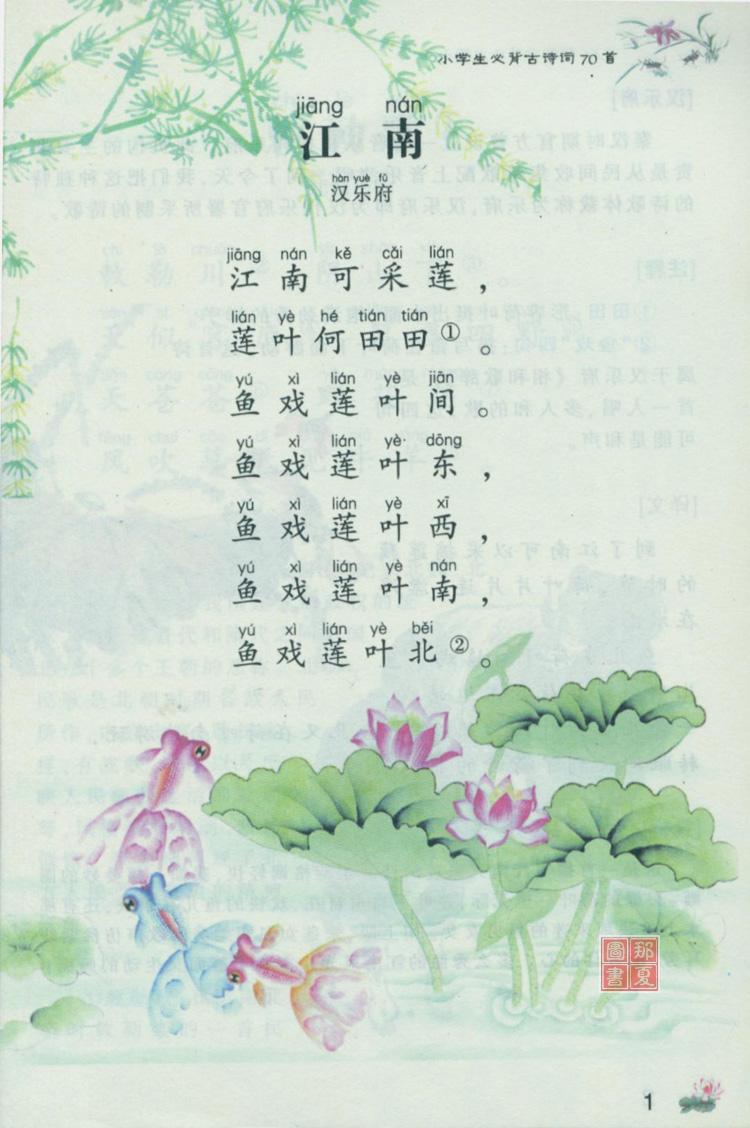 小学生必背古诗词70首
jiāng nán
江南
hàn yuè fǔ
汉乐府
jiāng nán kě cǎi lián
江南可采莲，
lián yè hé tián tián
莲叶何田田①。
yú xì lián yè jiān
鱼戏莲叶间。
yú xì lián yè dōng
鱼戏莲叶东，
yú xì lián yè xī
鱼戏莲叶西，
yú xì lián yè nán
鱼戏莲叶南，
yú xì lián yè běi
鱼戏莲叶北②。
那夏
圖書
1